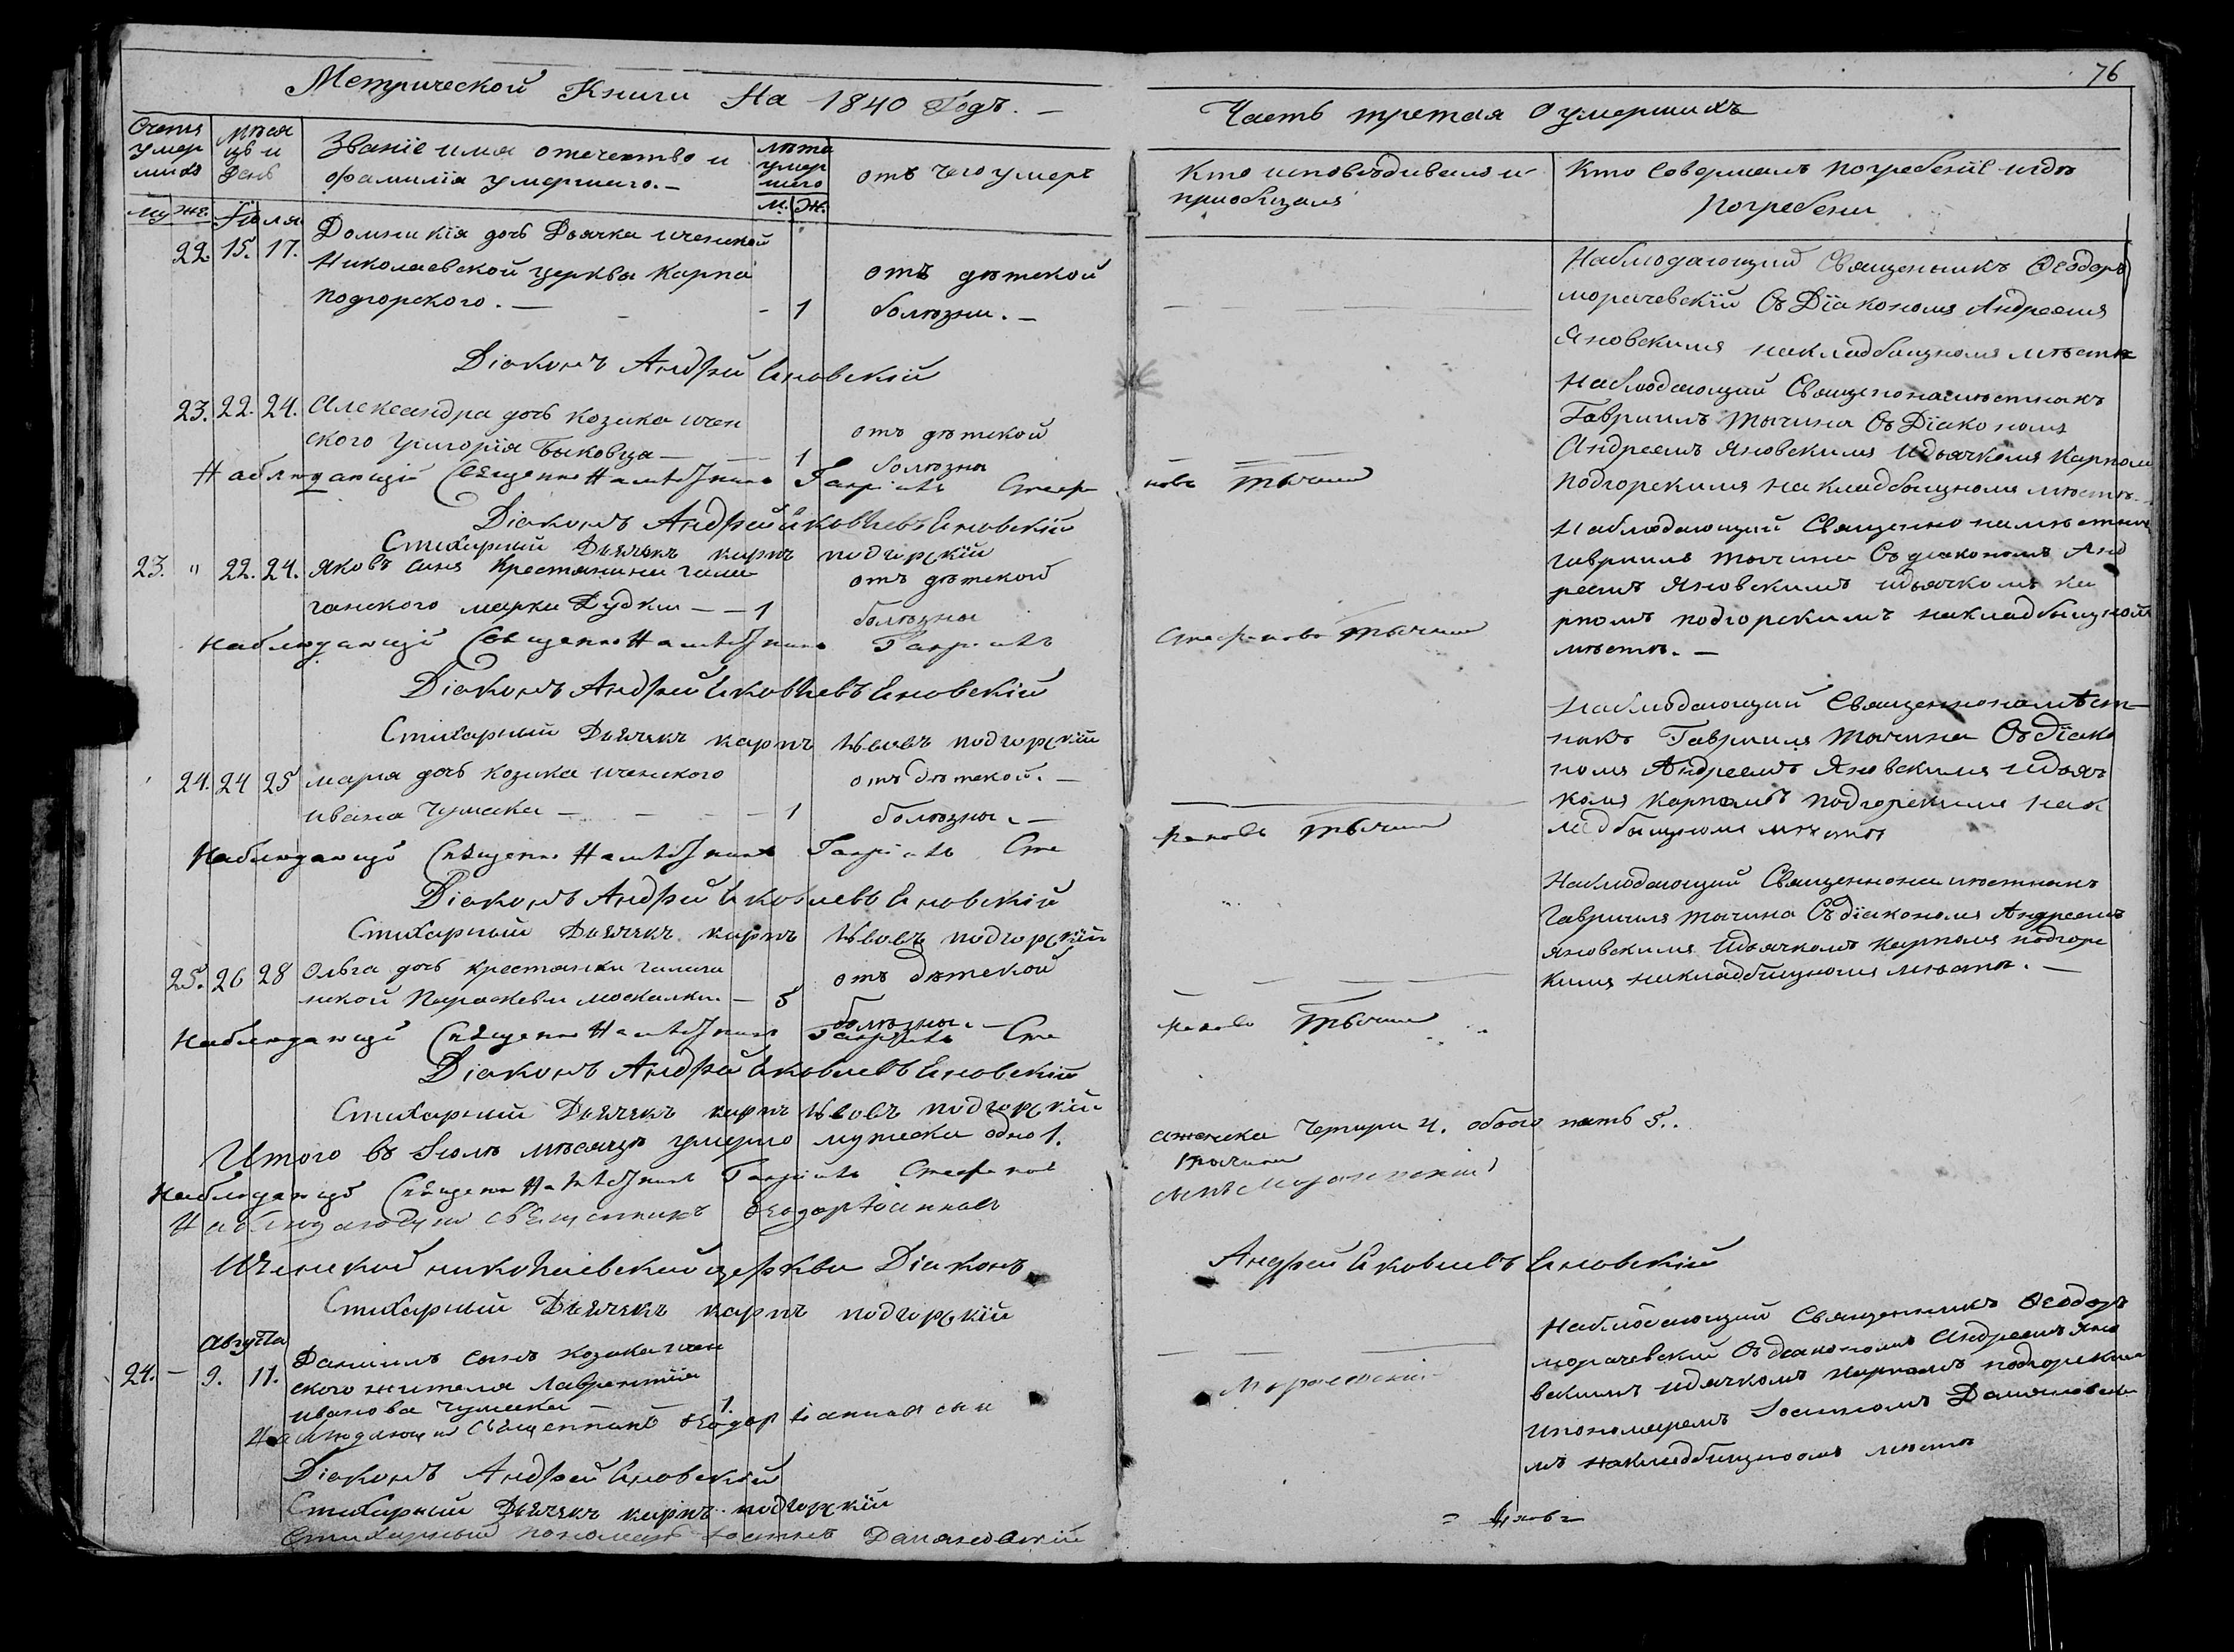 76
Метрической Книги На 1840 Годъ. —
Часть третая О умершихъ
Счетъ умершихъ
Мѣсяцъ и День
Званіе имя отечество и
фамилія умершаго. —
лѣта умершего
М. Ж.
отъ чего умеръ
Кто исповѣдивалъ и
приобщалъ
Кто Совершалъ Погребеніе и гдѣ
Погребены
Му же. Іюля
22. 15. 17. Домникія дочь Дьячка иченской
Николаевской церквы Карпа
подгорского. — 1
отъ дѣтской
болѣзни. —
Наблюдающий Священникъ Ѳеодоръ
морачевскій Съ Діакономъ Андреемъ
Яновскимъ накладбищномъ мѣстѣ
Діаконъ Андрей Яновскій
23. 22. 24. Александра дочь козака ичен
ского Григорія Быковца — 1
отъ дѣтской
болѣзны
Наблюдающий Священонамѣстникъ
Гавриилъ Тычина Съ Діакономъ
Андреемъ Яновскимъ идьячкомъ Карпом
Подгорскимъ на кладбыщномъ мѣстѣ
Наблюдающій Священно Намѣстникъ Гавріилъ Стефановъ Тычина
Діаконъ Андрей Яковлевъ Яновскій
Стихарный Дьячекъ карпъ подгорскій
23. " 22. 24. Яковъ сынъ Крестянини гали
ганского марки Дудки — — 1
отъ дѣтской
болѣзны
Наблюдающий Священно намѣстник
гавриилъ тычина Съ діакономъ Анд
реемъ Яновскимъ идьячкомъ ка
рпомъ подгорскимъ накладбыщномъ
мѣстѣ. —
Наблюдающій Священно Намѣстникъ Гавріилъ Стефановъ Тычина
Діаконъ Андрей Яковлевъ Яновскій
Стихарный Дьячекъ карпъ Ивовъ подгорскій
24. 24 25 мария дочь козака иченского
ивана чумака — 1
отъ дѣтской. —
болѣзны. —
Наблюдающий Священнонамѣст
никъ Гавриилъ Тычина Съ діако
номъ Андреемъ Яновскимъ идьяч
комъ Карпомъ подгорскимъ на к
ладбищномъ мѣстѣ
Наблюдающій Священно Намѣстникъ Гавріилъ Стефановъ Тычина
Діаконъ Андрей Яковлевъ Яновскій
Стихарный Дьячекъ карпъ Ивовъ подгорскій
25. 26 28 Ольга дочь крестянки галига
нской Параскеви москалки. — 5
отъ дѣтской
болѣзны. —
Наблюдающий Священнонамѣстникъ
Гавриилъ тычина Съ діакономъ Андреемъ
яновскимъ идьячкомъ карпомъ подгорс
кимъ накладбищномъ мѣстѣ. —
Наблюдающій Священно Намѣстникъ Гавріилъ Стефановъ Тычина
Діаконъ Андрей Яковлевъ Яновскій
Стихарный Дьячекъ карпъ Ивовъ подгорскій
Итого въ Іюлѣ мѣсяцѣ умерло мужеска одно 1. аженска Четири 4. обоего пять 5.
Наблюдающій Священно Намѣстникъ Гавріилъ Стефановъ Тычина
Наблюдающій священникъ Ѳеодоръ Іоанновъ сынъ Морачевскій
Иченской николаевской церкви Діаконъ Андрей Яковлевъ Яновскій
Стихарный Дьячекъ карпъ подгорскій
Августа
24. — 9. 11. Даниилъ сынъ козака ичен
ского жителя Лаврентія
иванова чумака — 1.
Наблюдающий Священникъ Ѳеодоръ
морачевский Съ діакономъ Андреемъ яно
вскимъ идячкомъ карпомъ подгорским
ипономаремъ Іоанномъ Дамяновски
мъ накладбищномъ мѣстѣ
Наблюдающій Священникъ Ѳеодор Іоанновъ сын Морачевскій
Діаконъ Андрей Яновскій
Стихарный Дьячекъ карпъ подгорскій
Стихарный пономарь Іоаннъ Дамяновскій